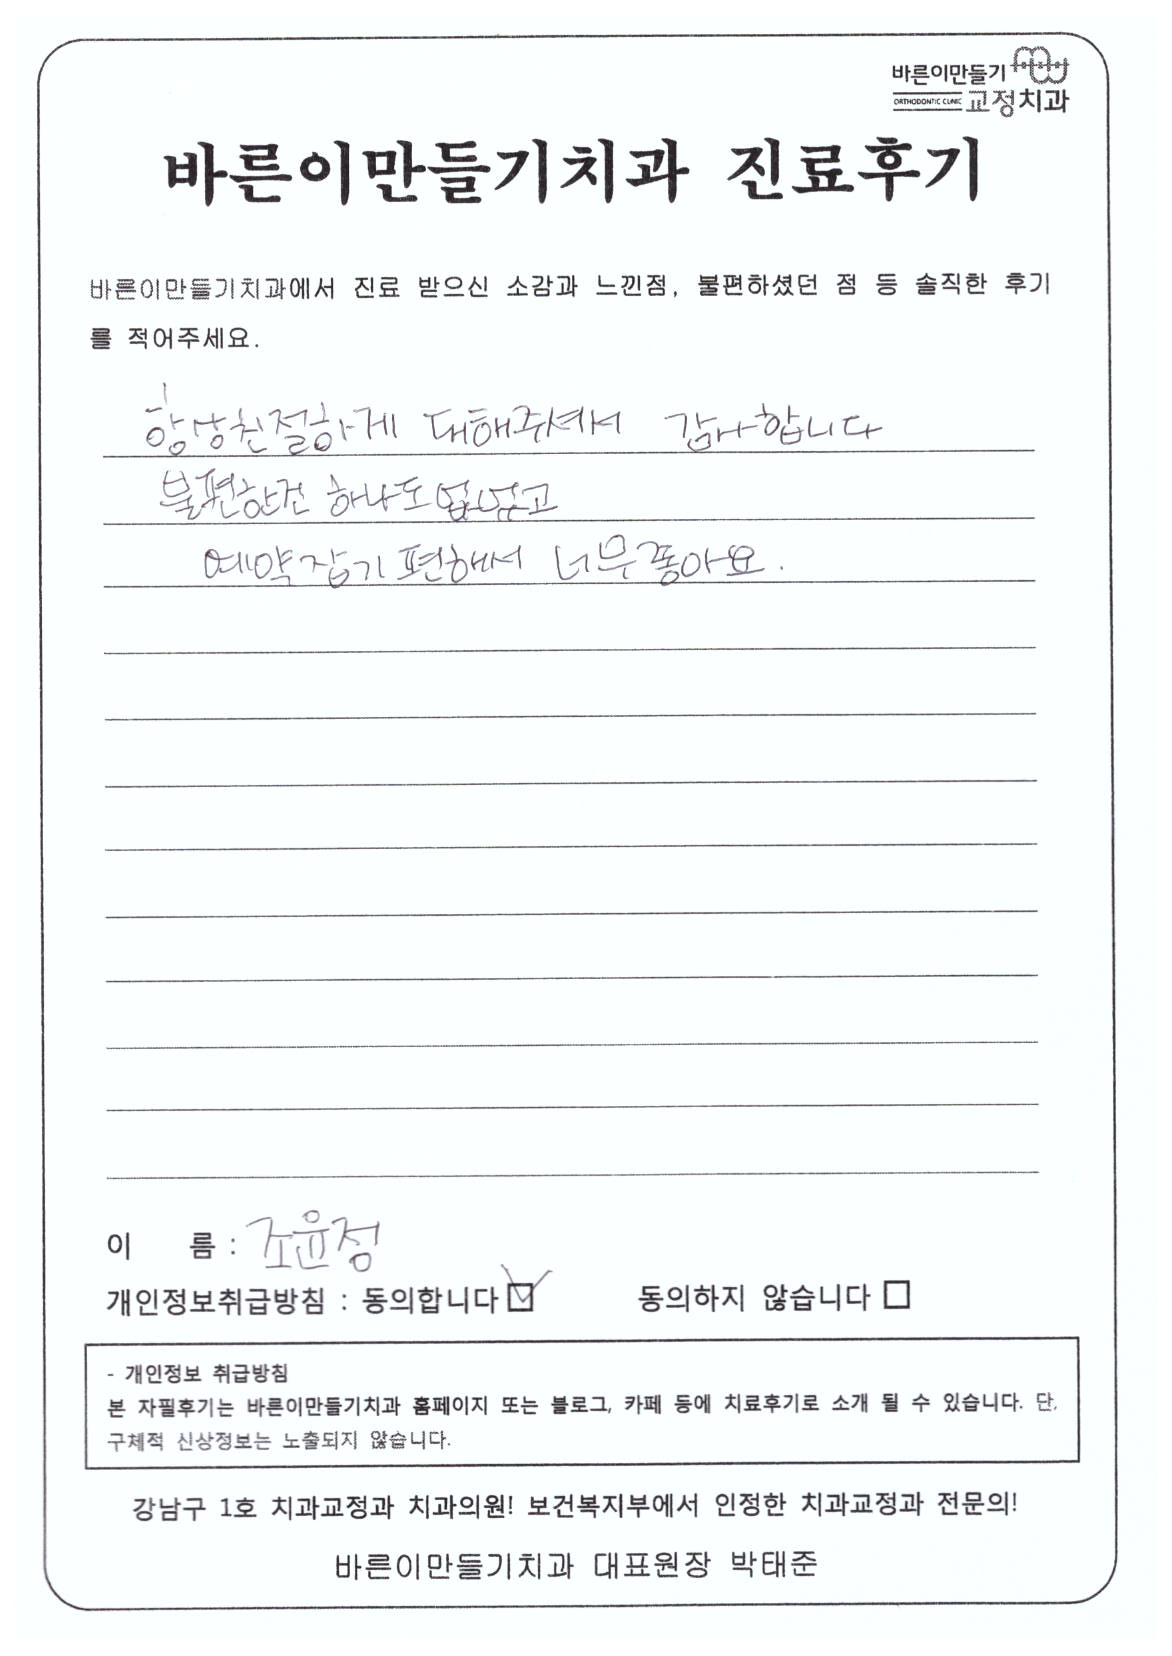 바른이만들기
ORTHODONTIC CLINIC 교정치과
바른이만들기치과 진료후기
바른이만들기치과에서 진료 받으신 소감과 느낀점, 불편하셨던 점 등 솔직한 후기
를 적어주세요.
항상친절하게 대해주셔서 감사합니다
불편한건 하나도 없었고
예약잡기 편해서 너무좋아요.
이 름 : 조윤정
개인정보취급방침 : 동의합니다 ☑ 동의하지 않습니다 □
- 개인정보 취급방침
본 자필후기는 바른이만들기치과 홈페이지 또는 블로그, 카페 등에 치료후기로 소개 될 수 있습니다. 단,
구체적 신상정보는 노출되지 않습니다.
강남구 1호 치과교정과 치과의원! 보건복지부에서 인정한 치과교정과 전문의!
바른이만들기치과 대표원장 박태준